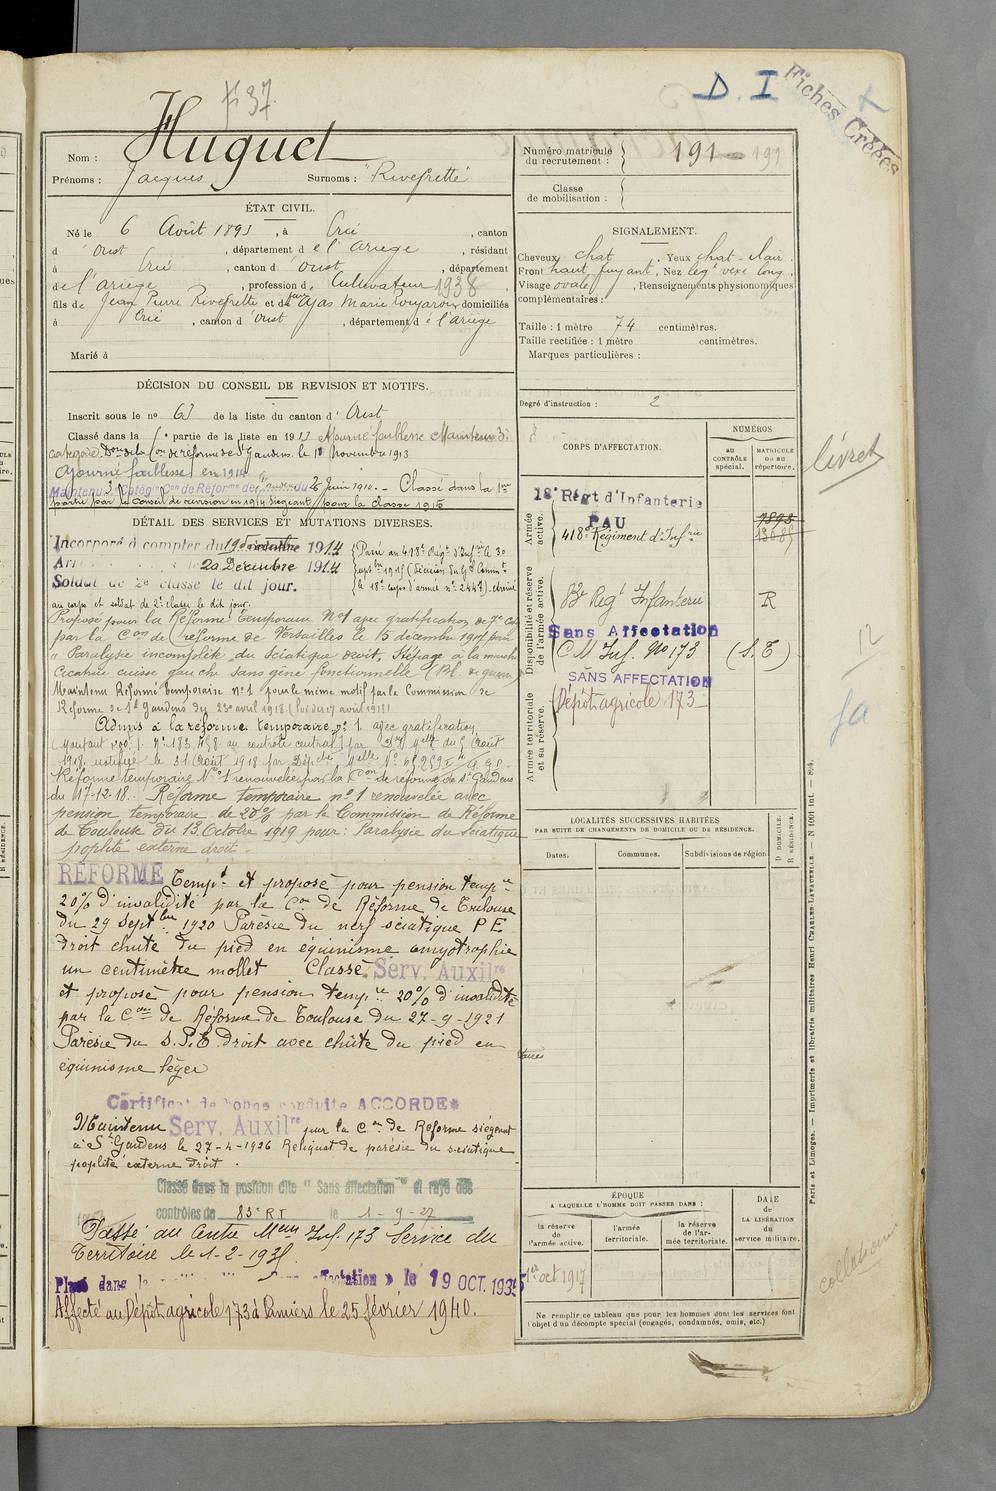 F 37
D. I
Fiches Créées
Nom : Huguet
Prénoms : Jacques Surnoms : "Rivefrette"
Numéro matricule du recrutement : 191 191
Classe de mobilisation :
ÉTAT CIVIL.
Né le 6 Août 1893, à Ercé, canton
d'Oust, département de l'Ariège, résidant
à Ercé, canton d'Oust, département
de l'Ariège, profession de Cultivateur 1938
fils de Jean Pierre Rivefrette et de feue Ajas Marie domiciliés
à Ercé, canton d'Oust, département de l'Ariège
Marié à
SIGNALEMENT.
Cheveux chat. Yeux chat. clair.
Front haut, fuyant, Nez légt vexe long,
Visage ovale, Renseignements physionomiques
complémentaires :
Taille : 1 mètre 74 centimètres.
Taille rectifiée : 1 mètre centimètres.
Marques particulières :
Degré d'instruction : 2
DÉCISION DU CONSEIL DE REVISION ET MOTIFS.
Inscrit sous le no 63 de la liste du canton d'Oust
Classé dans la 5e partie de la liste en 1913 Ajourné faiblesse Maintenu 3e
catégorie Don de la Con de réforme de St Gaudens le 18 Novembre 1913
Ajourné faiblesse en 1914
Maintenu 3e Catégie Con de Réforme de St Gaudens du 26 Juin 1914. - Classé dans la 1re
partie par le Conseil de revision en 1914 siégeant pour la classe 1915
DÉTAIL DES SERVICES ET MUTATIONS DIVERSES.
Incorporé à compter du 19 décembre 1914
le 20 Décembre 1914
Soldat de 2e classe le dit jour.
Passé au 418e Régt d'Infrie le 30
septbre 1915 (Décision du Gal Commt
le 18e corps d'armée no 2447) arrivé
au corps et soldat de 2e classe le dit jour.
Proposé pour la Réforme Temporaire No 1 avec gratification de 7e Cat
par la Con de réforme de Versailles le 15 décembre 1917 pour
"Paralysie incomplète du Sciatique droit, Steppage à la marche
Cicatrice cuisse gauche sans gêne fonctionnelle (Bl. de guerre)
Maintenu Réformé temporaire no 1 pour le même motif par la Commission de
Réforme de St Gaudens du 23 avril 1918. (Loi du 17 août 1915)
Admis à la réforme temporaire no 1 avec gratification
No 183.498 au contrôle central) par Don Mlle du 5 Août
1918, notifiée le 31 Août 1918 par Dépche Mlle No
Réforme temporaire No 1 renouvelée par la Con de réforme de St Gaudens
du 17-12-18. Réforme temporaire no 1 renouvelée avec
pension temporaire de 20% par la Commission de Réforme
de Toulouse du 13 Octobre 1919 pour: Paralysie du Sciatique
poplité externe droit.
RÉFORME Tempre et proposé pour pension tempre
20% d'invalidité par la Con de Réforme de Toulouse
du 29 Septbre 1920 Parésie du nerf sciatique P E
droit chute du pied en équinisme amyotrophie
un centimètre mollet Classé Serv. Auxilre
et proposé pour pension tempre 20% d'invalidité
par la Con de Réforme de Toulouse du 27-9-1921
Parésie du S.P.E droit avec chute du pied en
équinisme léger
Certificat de bonne conduite ACCORDÉ
Maintenu Serv. Auxilre par la Con de Réforme siégeant
à St Gaudens le 27-4-1926 Reliquat de parésie du sciatique
poplité externe droit.
Classé dans la position dite "Sans affectation" et rayé des
contrôles du 83e RI le 1-9-27
Passé au Centre Meur Inf. 173 Service du
Territoire le 1-2-193
Placé dans la affectation » le 19 OCT. 1935
Affecté au Dépôt agricole 173 à Pamiers le 25 février 1940.
CORPS D'AFFECTATION.
NUMÉROS
au CONTRÔLE spécial.
MATRICULE ou au répertoire.
Armée active.
18e Régt d'Infanterie
PAU
418e Régiment d'Infrie
1898
13689
Disponibilité et réserve de l'armée active.
83e Regt Infanterie R
Sans Affectation
C M Inf. No 173 (S.E)
SANS AFFECTATION
Armée territoriale et sa réserve.
Dépôt agricole 173
livret
LOCALITÉS SUCCESSIVES HABITÉES
PAR SUITE DE CHANGEMENTS DE DOMICILE OU DE RÉSIDENCE.
Dates. Communes. Subdivisions de région
D DOMICILE.
R RÉSIDENCE.
ÉPOQUE
A LAQUELLE L'HOMME DOIT PASSER DANS :
la réserve de l'armée active.
l'armée territoriale.
la réserve de l'armée territoriale.
DATE de LA LIBÉRATION du service militaire.
1er oct 1917
Ne remplir ce tableau que pour les hommes dont les services font
l'objet d'un décompte spécial (engagés, condamnés, omis, etc.)
Paris et Limoges. — Imprimerie et librairie militaires Henri CHARLES-LAVAUZELLE. — N 1001 int. — 894.